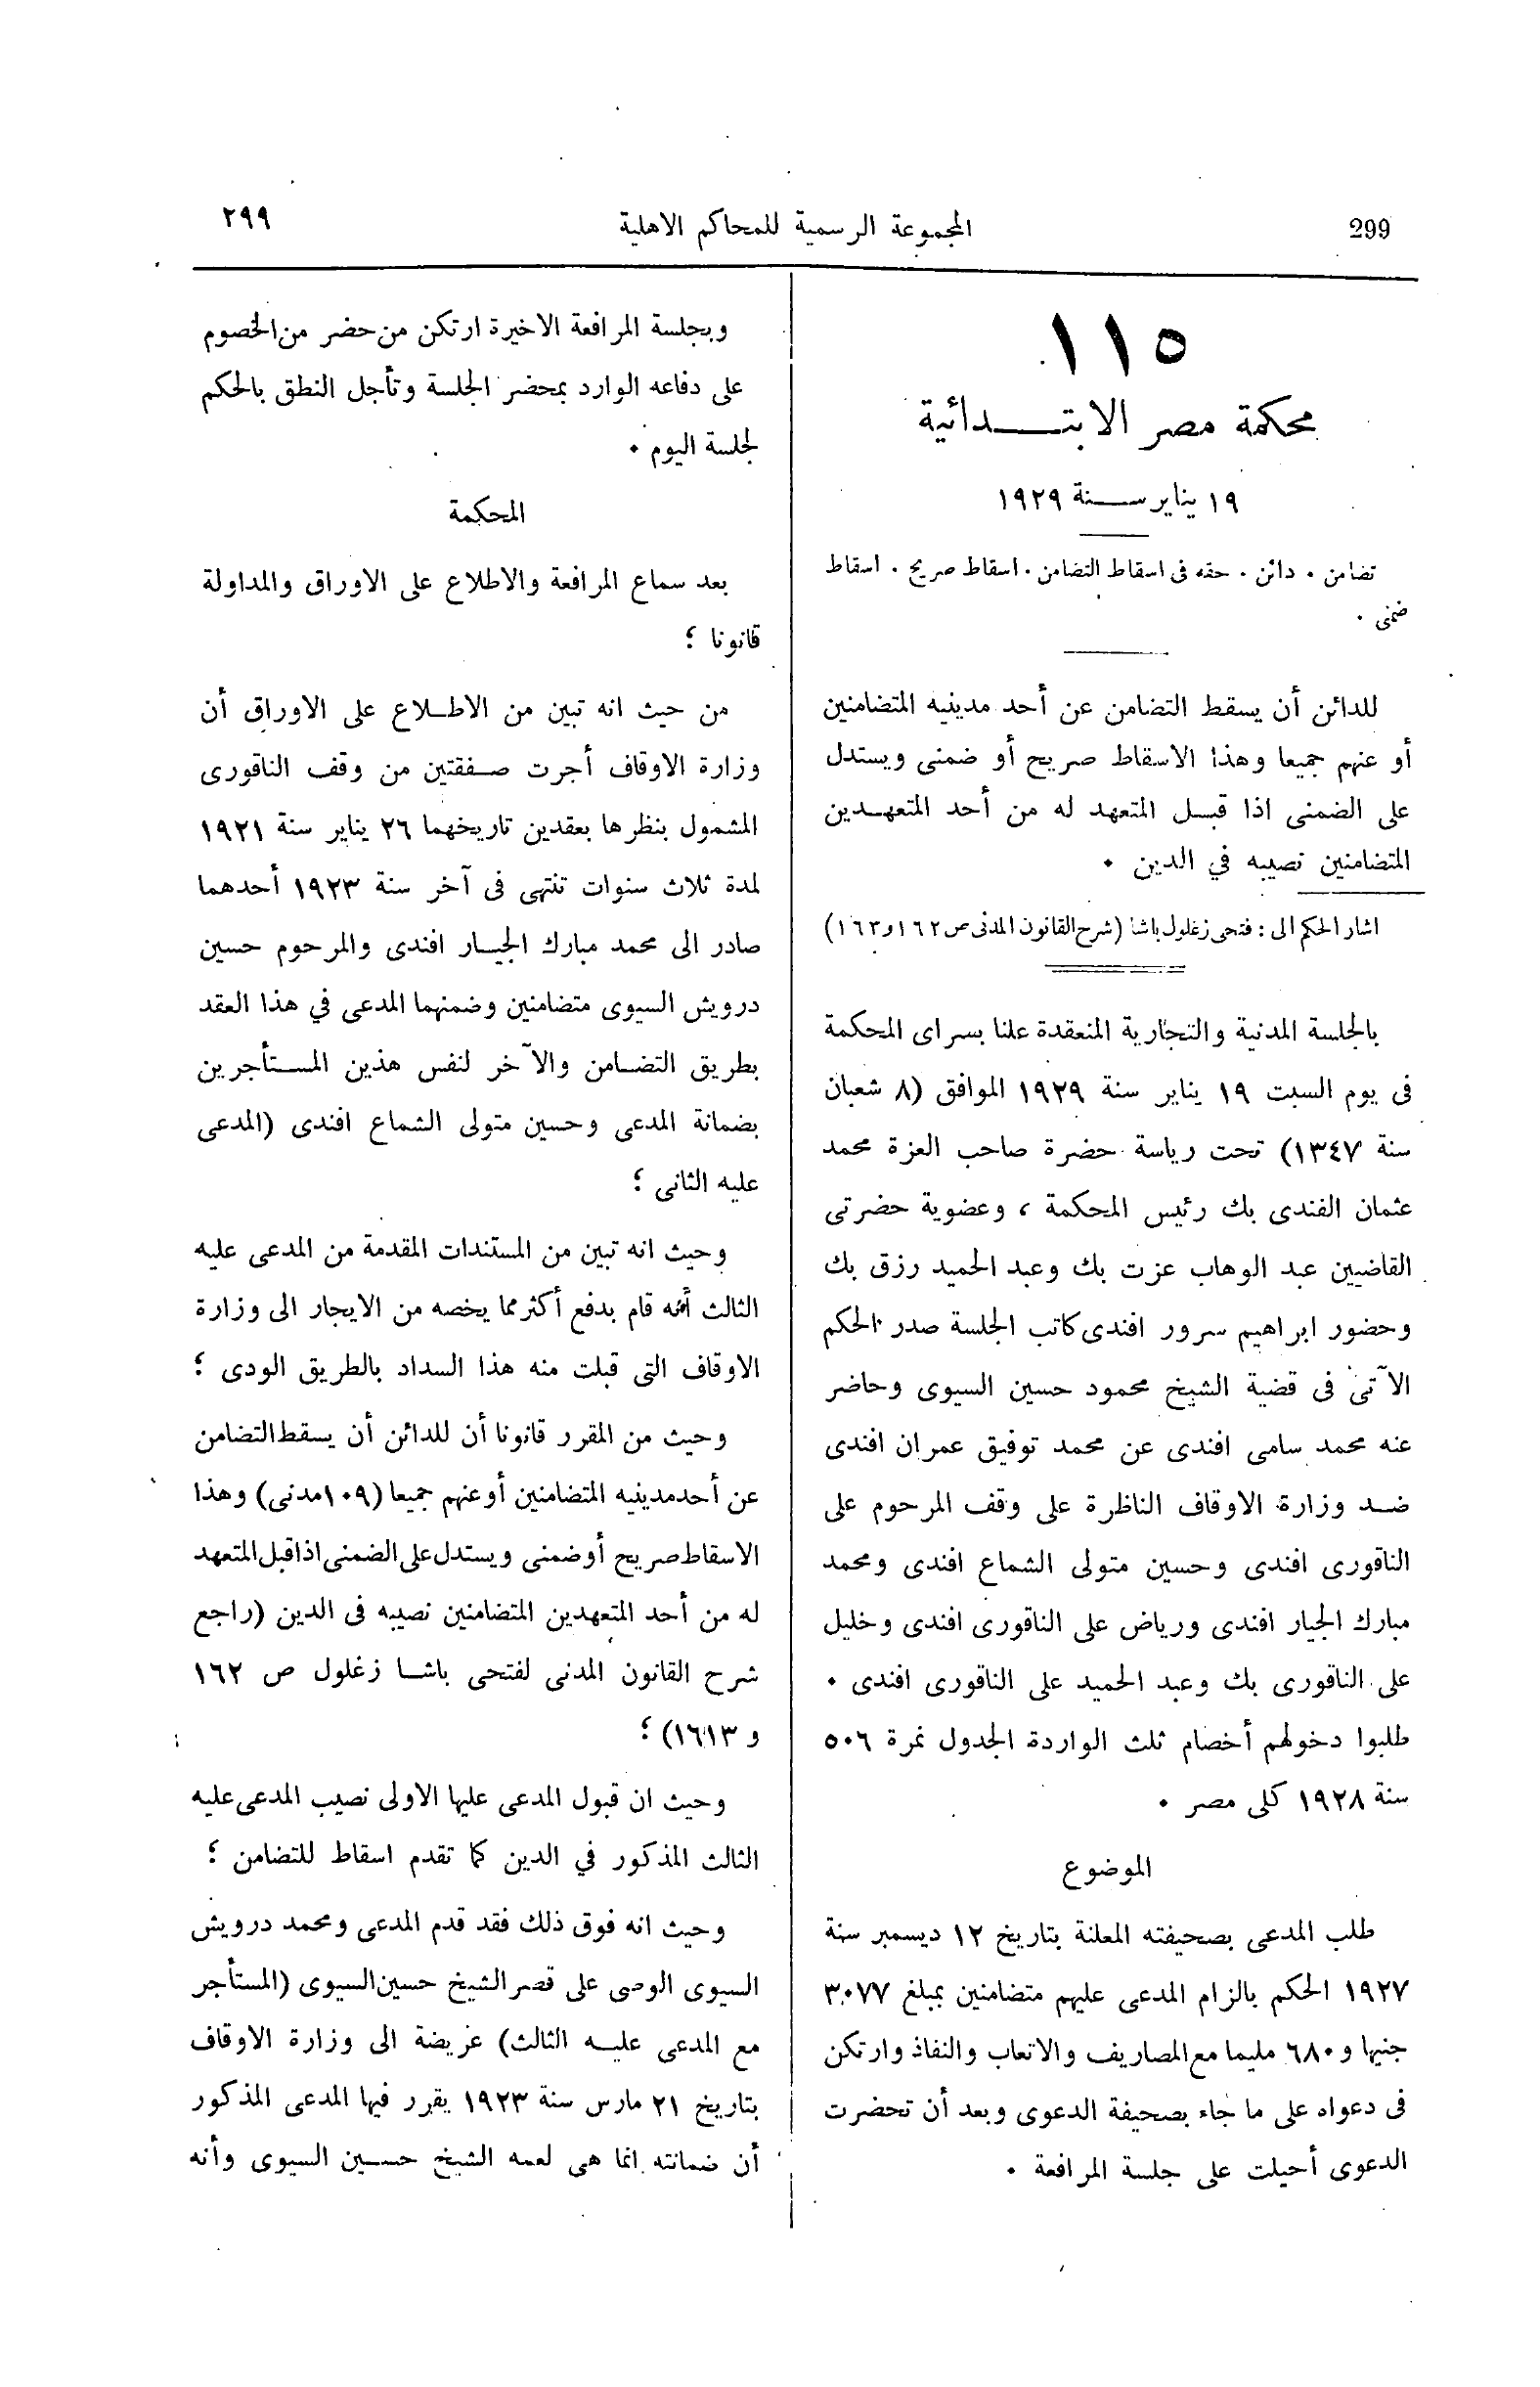 299
المجموعة الرسمية للمحاكم الاهلية
٢٩٩
١١٥
محكمة مصر الابتــدائية
١٩ يناير ســنة ١٩٢٩
تضامن . دائن . حقه فى اسقاط التضامن . اسقاط صريح . اسقاط
ضمنى .
للدائن أن يسقط التضامن عن أحد مدينيه المتضامنين
أو عنهم جميعا وهذا الاسقاط صريح أو ضمنى ويستدل
على الضمنى اذا قبل المتعهد له من أحد المتعهدين
المتضامنين نصيبه في الدين .
اشار الحكم الى : فتحى زغلول باشا (شرح القانون المدنى ص ١٦٢ و ١٦٣)
بالجلسة المدنية والتجارية المنعقدة علنا بسراى المحكمة
فى يوم السبت ١٩ يناير سنة ١٩٢٩ الموافق (٨ شعبان
سنة ١٣٤٧) تحت رياسة حضرة صاحب العزة محمد
عثمان الفندى بك رئيس المحكمة ، وعضوية حضرتى
القاضيين عبد الوهاب عزت بك وعبد الحميد رزق بك
وحضور ابراهيم سرور افندى كاتب الجلسة صدر الحكم
الآتى فى قضية الشيخ محمود حسين السيوى وحاضر
عنه محمد سامى افندى عن محمد توفيق عمران افندى
ضد وزارة الاوقاف الناظرة على وقف المرحوم على
الناقورى افندى وحسين متولى الشماع افندى ومحمد
مبارك الجيار افندى ورياض على الناقورى افندى وخليل
على الناقورى بك وعبد الحميد على الناقورى افندى .
طلبوا دخولهم أخصام ثلث الواردة الجدول نمرة ٥٠٦
سنة ١٩٢٨ كلى مصر .
الموضوع
طلب المدعى بصحيفته المعلنة بتاريخ ١٢ ديسمبر سنة
١٩٢٧ الحكم بالزام المدعى عليهم متضامنين بمبلغ ٣٠٧٧
جنيها و ٦٨٠ مليما مع المصاريف والاتعاب والنفاذ وارتكن
فى دعواه على ما جاء بصحيفة الدعوى وبعد أن تحضرت
الدعوى أحيلت على جلسة المرافعة .
وبجلسة المرافعة الاخيرة ارتكن من حضر من الخصوم
على دفاعه الوارد بمحضر الجلسة وتأجل النطق بالحكم
لجلسة اليوم .
المحكمة
بعد سماع المرافعة والاطلاع على الاوراق والمداولة
قانونا ؛
من حيث انه تبين من الاطلاع على الاوراق أن
وزارة الاوقاف أجرت صفقتين من وقف الناقورى
المشمول بنظرها بعقدين تاريخهما ٢٦ يناير سنة ١٩٢١
لمدة ثلاث سنوات تنتهى فى آخر سنة ١٩٢٣ أحدهما
صادر الى محمد مبارك الجيار افندى والمرحوم حسين
درويش السيوى متضامنين وضمنهما المدعى في هذا العقد
بطريق التضامن والآخر لنفس هذين المستأجرين
بضمانة المدعى وحسين متولى الشماع افندى (المدعى
عليه الثانى ؛
وحيث انه تبين من المستندات المقدمة من المدعى عليه
الثالث أنه قام بدفع أكثر مما يخصه من الايجار الى وزارة
الاوقاف التى قبلت منه هذا السداد بالطريق الودى ؛
وحيث من المقرر قانونا أن للدائن أن يسقط التضامن
عن أحد مدينيه المتضامنين أو عنهم جميعا (١٠٩ مدنى) وهذا
الاسقاط صريح أو ضمنى ويستدل على الضمنى اذا قبل المتعهد
له من أحد المتعهدين المتضامنين نصيبه فى الدين (راجع
شرح القانون المدنى لفتحى باشا زغلول ص ١٦٢
و ١٦١٣) ؛
وحيث ان قبول المدعى عليها الاولى نصيب المدعى عليه
الثالث المذكور في الدين كما تقدم اسقاط للتضامن ؛
وحيث انه فوق ذلك فقد قدم المدعى ومحمد درويش
السيوى الوصى على قصر الشيخ حسين السيوى (المستأجر
مع المدعى عليه الثالث) عريضة الى وزارة الاوقاف
بتاريخ ٢١ مارس سنة ١٩٢٣ يقرر فيها المدعى المذكور
أن ضمانته انما هى لعمه الشيخ حسين السيوى وأنه